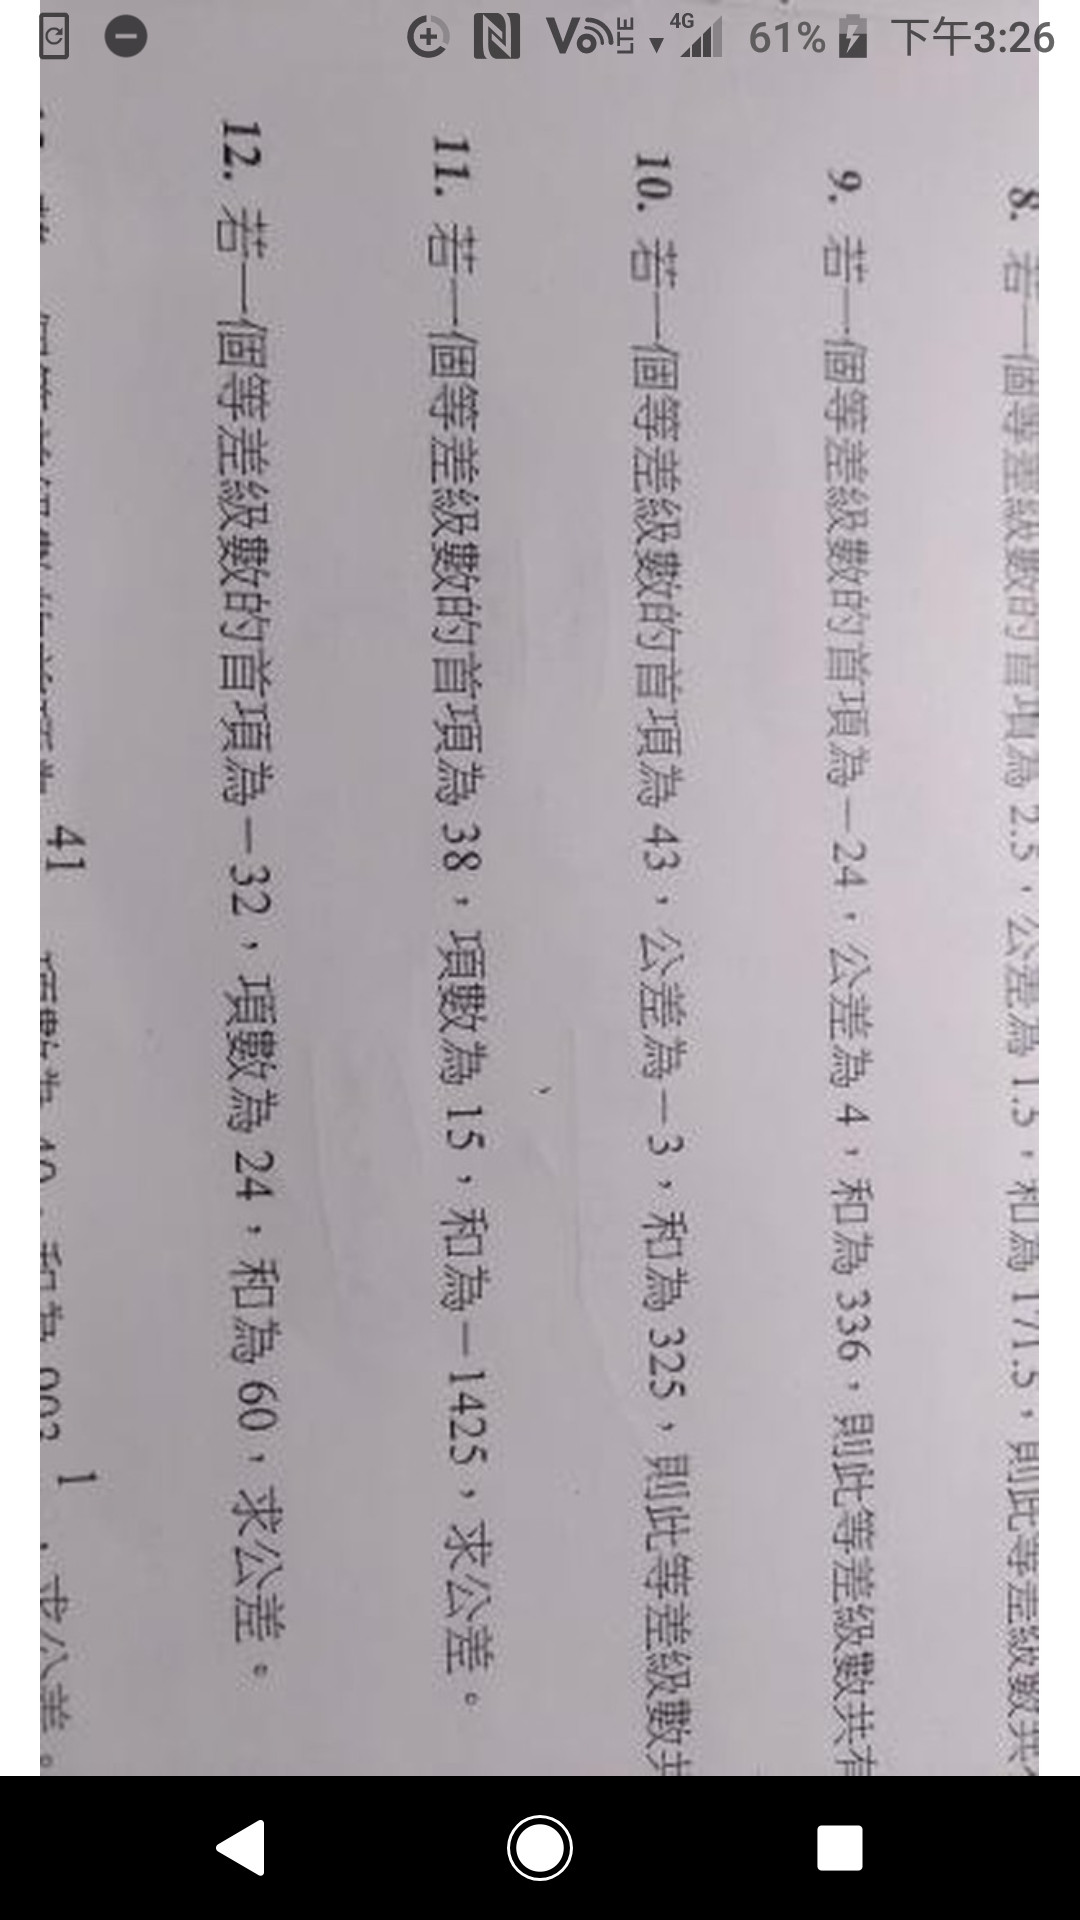 Vo LTE 4G 61% 下午3:26
8. 若一個等差級數的首項為 2.5，公差為 1.5，和為 171.5，則此等差級數共
9. 若一個等差級數的首項為－24，公差為 4，和為 336，則此等差級數共有
10. 若一個等差級數的首項為 43，公差為－3，和為 325，則此等差級數共
11. 若一個等差級數的首項為 38，項數為 15，和為－1425，求公差。
12. 若一個等差級數的首項為－32，項數為 24，和為 60，求公差。
41 項數為 1 ，求公差。